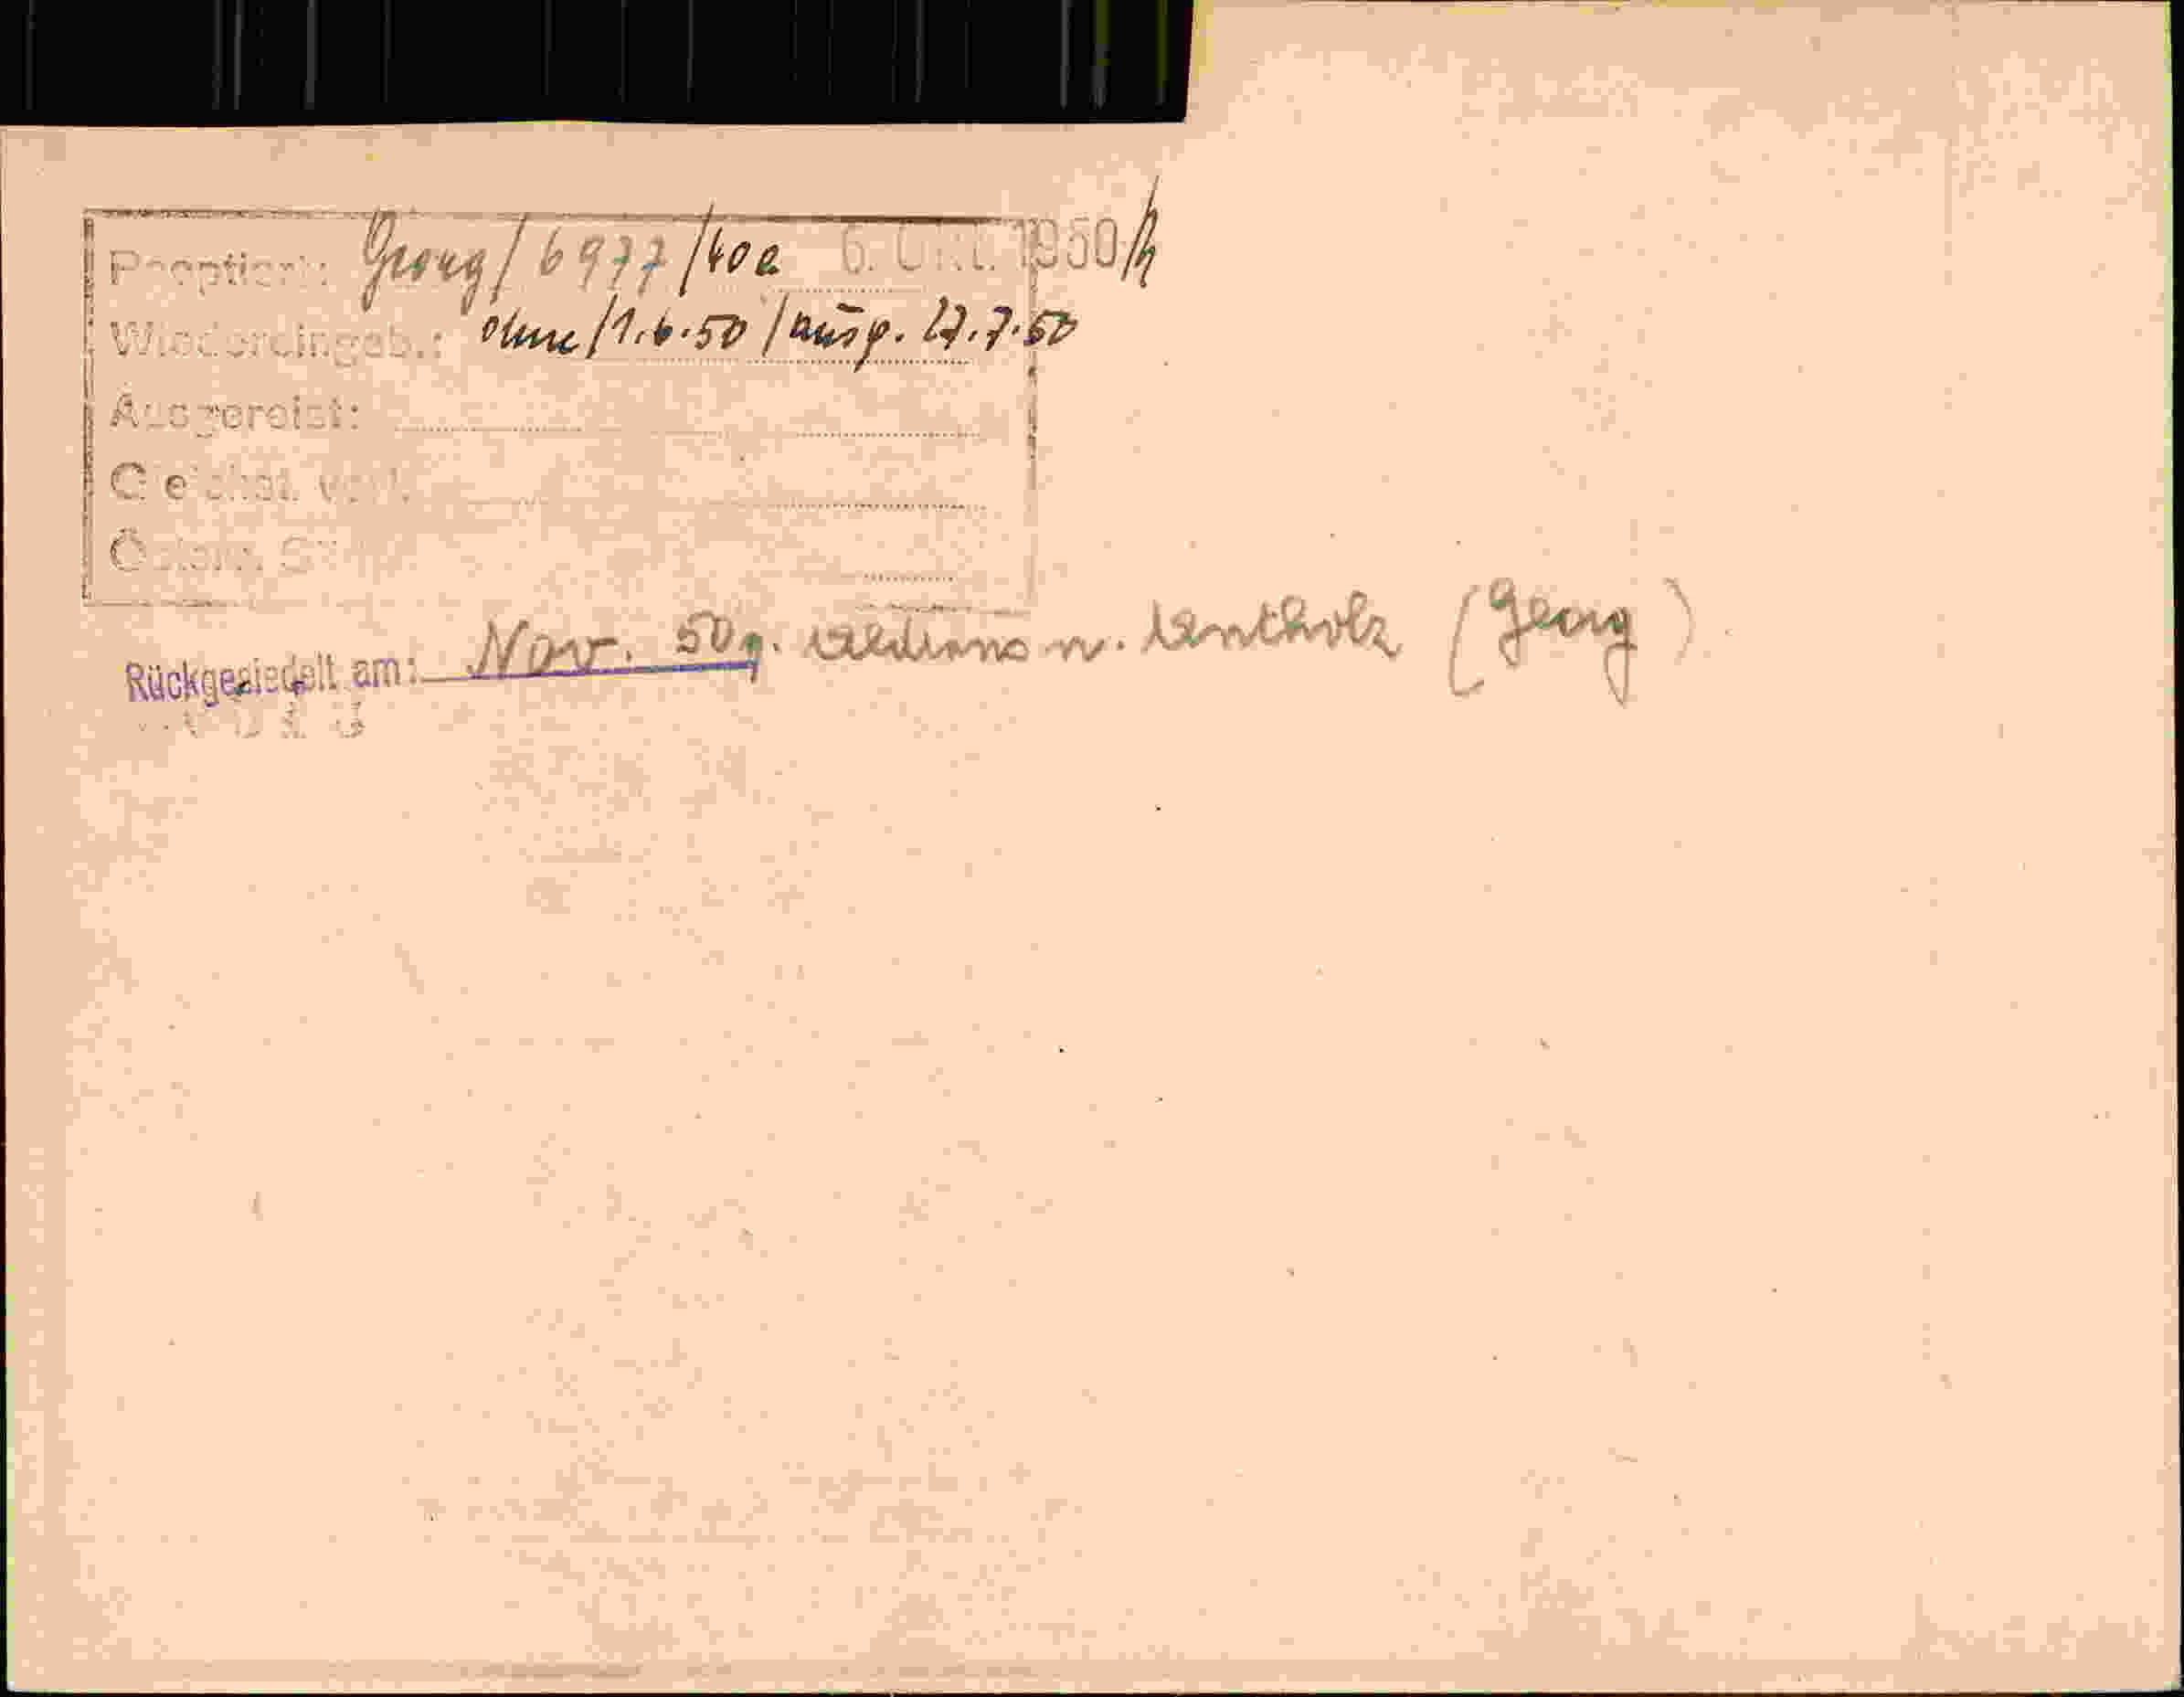 Reoptiert: Georg / 6977 / 40e 6. Okt. 1950 / h
Wiedereingeb.: ohne / 1.6.50 / ausg. 27.7.50
Ausgereist:
Gleichst. vorl.
Österr. St
Rückgesiedelt am: Nov. 50 g. n. (Georg)